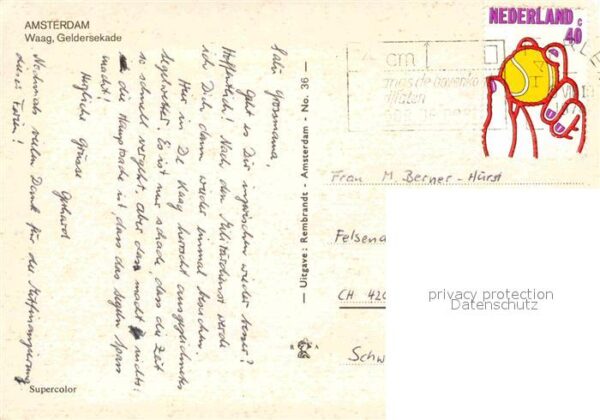 AMSTERDAM
Waag, Geldersekade
Salü Grosmama,
Geht es Dir inzwischen wieder besser?
Hoffentlich! Nach dem Militärdienst werde
ich Dich dann wieder einmal besuchen.
Hier in De Kaag herrscht ausgezeichnetes
Segelwetter. Es ist nur schade, dass die Zeit
so schnell vergeht, aber das macht nichts:
die Hauptsache ist, dass das Segeln Spass
macht!
Herzliche Grüsse
Gerhard
Nochmals vielen Dank für die Mitfinanzierung
dieser Ferien!
Supercolor
— Uitgave: Rembrandt - Amsterdam - No. 36 —
NEDERLAND c
40
cm
Frau M. Berner-Hürst
Felsena
CH 420
Schw
privacy protection
Datenschutz